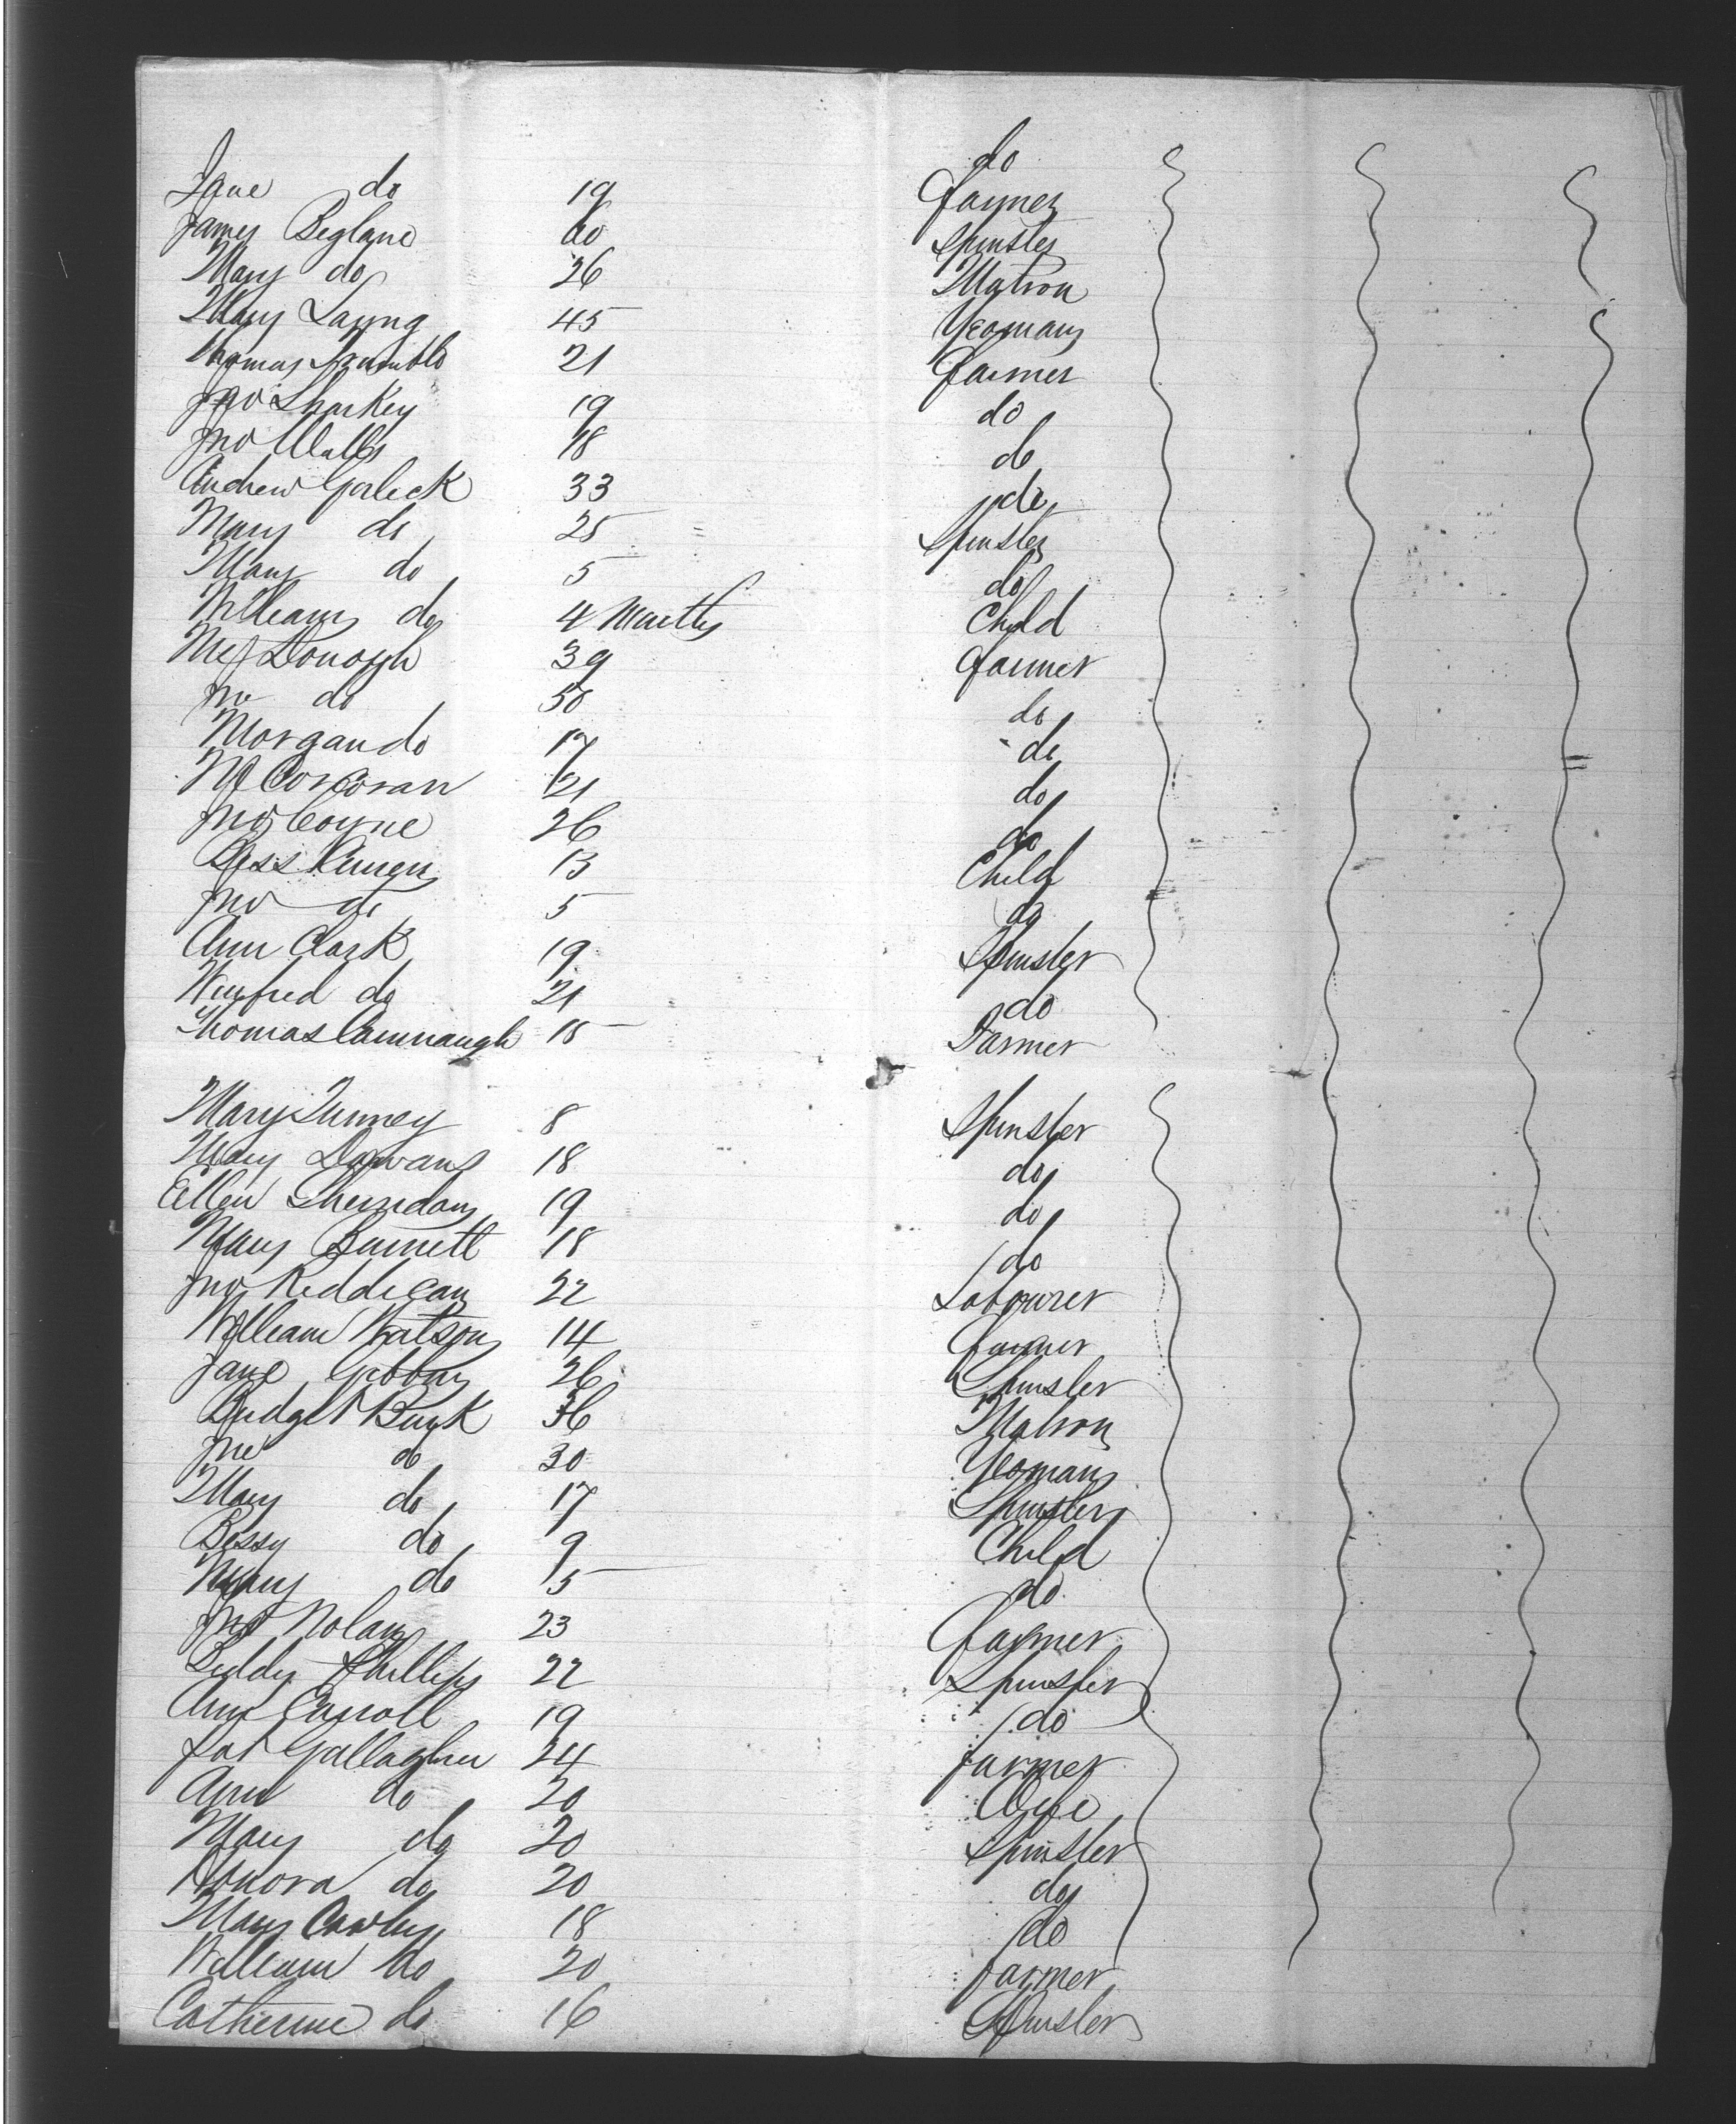 Jane do 19 do
James Beglane 60 Farmer
Mary do 26 Spinster
Mary Layng 45 Matron
Thomas Trumble 21 Yeoman
Jno Sharkey 19 Farmer
Jno Walls 18 do
Andrew Garlick 33 do
Mary do 25 do
Mary do 5 Spinster
William do 4 Months do
Child
Mc Donogh 39 Farmer
Jno do 50 do
Morgan do 17 do
M Corcoran 21 do
Jno Coyne 26 do
Bess 13 Child
Jno do 5 do
Ann Clark 19 Spinster
Winfred do 21 do
Thomas Cavanaugh 18 Farmer
Mary Tunney 8 Spinster
Mary Dowans 18 do
Ellen Sherridan 19 do
Mary Burnett 18 do
Jno Reddican 22 Labourer
William Watson 14 Farmer
Jane Gibbon 26 Spinster
Bridget Burk 36 Matron
Jno do 30 Yeoman
Mary do 17 Spinster
Bessy do 9 Child
Mary do 5 do
Jno Nolan 23 Farmer
Biddy Phillips 22 Spinster
Ann Carroll 19 do
Pat Gallagher 24 farmer
Ann do 20 Wife
Mary do 20 Spinster
Honora do 20 do
Mary Cawley 18 do
William do 20 farmer
Catherine do 16 Spinster